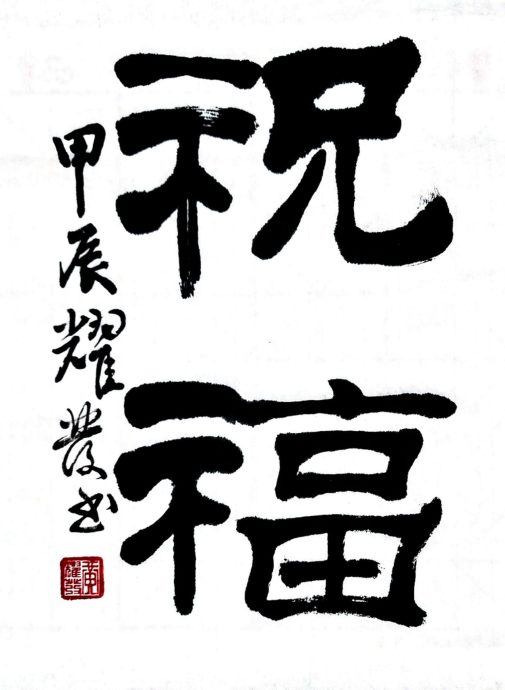 祝福
甲辰耀發书